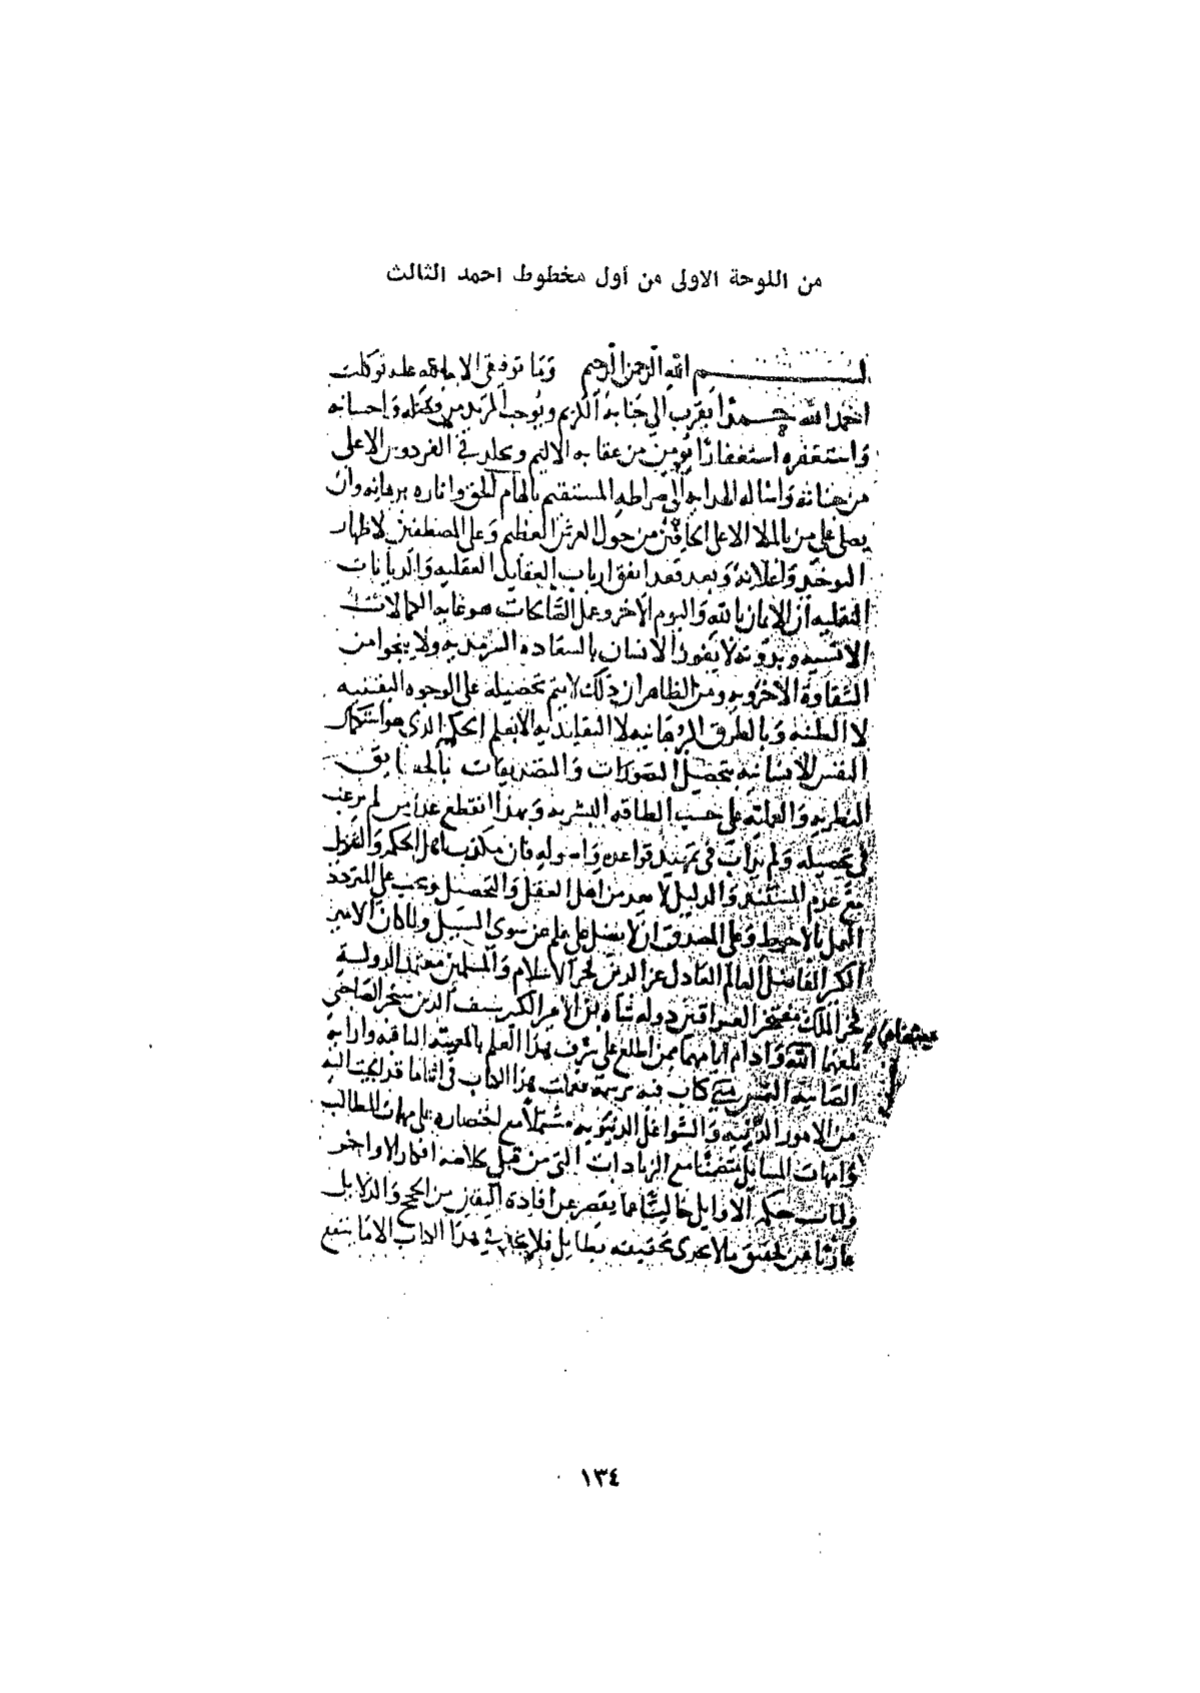 من اللوحة الاولى من أول مخطوط احمد الثالث
بسم الله الرحمن الرحيم وما توفيقى الا بالله عليه توكلت
احمد الله حمدا يقرب الى جنابه الكريم ويوجب المزيد من واحسانه
واستغفره استغفارا يؤمن من عقابه الاليم ويخلد في الفردوس الاعلى
من جنانه واساله الهداية الى صراطه المستقيم بالهام الحق وانارة برهانه وان
يصلى على من بالملا الاعلى الحافين من حول العرش العظيم وعلى المصطفين لاظهار
التوحيد واعلانه وبعد فقد اتفق ارباب العقايد العقليه والديانات
النقليه ان الايمان بالله واليوم الاخر وعمل الصالحات هو غاية الكمالات
الانسيه وبدونه لا يفوز الانسان بالسعاده السرمديه ولا ينجوا من
الشقاوة الاخرويه ومن الظاهر ان ذلك لا يتم تحصيله على الوجوه اليقينيه
لا الظنيه وبالطرق البرهانيه لا التقليديه الا بعلم الحكمه الذى هو استكمال
النفس الانسانيه بتحصيل التصورات والتصديقات بالحقايق
النظريه والعمليه على حسب الطاقه البشريه وبهذا انقطع عذر من لم يرغب
في تحصيله ولم يداب في تمهيد قواعده واصوله فان تكذيب اهل الحكمه
مع عدم المستند والدليل لا يعد من اهل العقل والتحصيل ويجب على المتردد
العمل بالاحوط وعلى المصدق ان لا يضل على علم عن سوى السبيل ولما كان الامير
الكبير الفاضل العالم العادل عز الدين فخر الاسلام والمسلمين معتمد الدولة
فخر الملك مفتخر العراقين دوله شاه بن الامير الكبير سيف الدين سنجر الصاحبى
بلغهما الله وادام ايامهما ممن اطلع على شرف هذا العلم بالمعيته الثاقبه وارايه
الصائبه التمس منى كتاب فيه برسمه فعملت هذا الكتاب في اثناء ما قد
من الامور الدينيه والشواغل الدنيويه مشتملا مع اختصاره على مهمات المطالب
وامهات المسايل متضمنا مع الزيادات التى من قبلى خلاصه افكار الاواخر
ولباب حكم الاوايل خاليا عما يقصر عن افادة اليقين من الحجج والدلايل
عازفا عن تحقيق ما لا يجدى تحقيقه بطايل فلا تجد في هذا الكتاب الا ما ينتفع
١٣٤